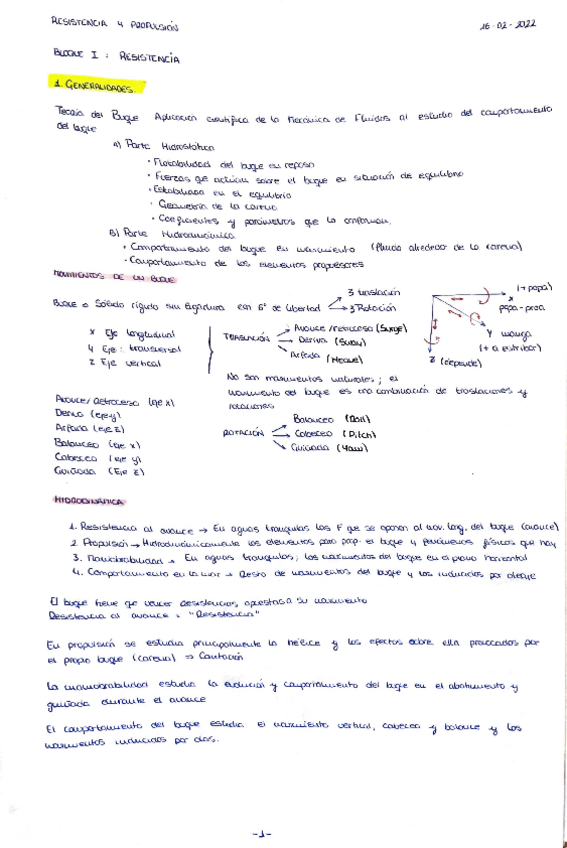 RESISTENCIA Y PROPULSIÓN 16-02-2022
BLOQUE I : RESISTENCIA
1. GENERALIDADES.
Teoría del Buque Aplicación científica de la Mecánica de Fluidos al estudio del comportamiento
del buque
a) Parte Hidrostática
· Flotabilidad del buque en reposo
· Fuerzas que actúan sobre el buque en situación de equilibrio
· Estabilidad en el equilibrio
· Geometría de la carena
· Coeficientes y parámetros que la conforman.
B) Parte Hidrodinámica
· Comportamiento del buque en movimiento (fluido alrededor de la carena)
· Comportamiento de los elementos propulsores
MOVIMIENTOS DE UN BUQUE
BUQUE = Sólido rígido sin ligadura con 6° de libertad
3 traslación
3 Rotación
(+ popa)
x
popa-proa
y manga
(+ a estribor)
z (depende)
x Eje longitudinal
y Eje: transversal
z Eje vertical
TRASLACIÓN
Avance/retroceso (Surge)
Deriva (Sway)
Arfada (Heave)
No son movimientos naturales; el
movimiento del buque es una combinación de traslaciones y
rotaciones
Avance/Retroceso (eje x)
Deriva (eje y)
Arfada (eje z)
Balanceo (eje x)
Cabeceo (eje y)
Guiñada (Eje z)
ROTACIÓN
Balanceo (Roll)
Cabeceo (Pitch)
Guiñada (Yaw)
HIDRODINÁMICA
1. Resistencia al avance → En aguas tranquilas las F que se oponen al mov. long. del buque (avance)
2 Propulsión → Hidrodinámicamente los elementos para prop. el buque y fenómenos físicos que hay
3. Maniobrabilidad → En aguas tranquilas; los movimientos del buque en el plano horizontal
4. Comportamiento en la mar → Resto de movimientos del buque y los inducidos por oleaje
El buque tiene que vencer resistencias, opuestas a su movimiento
Resistencia al avance = "Resistencia"
En propulsión se estudia principalmente la hélice y los efectos sobre ella provocados por
el propio buque (carena) => Cavitación
La maniobrabilidad estudia la evolución y comportamiento del buque en el abatimiento y
guiñada durante el avance
El comportamiento del buque estudia el movimiento vertical, cabeceo y balance y los
movimientos inducidos por olas.
-1-